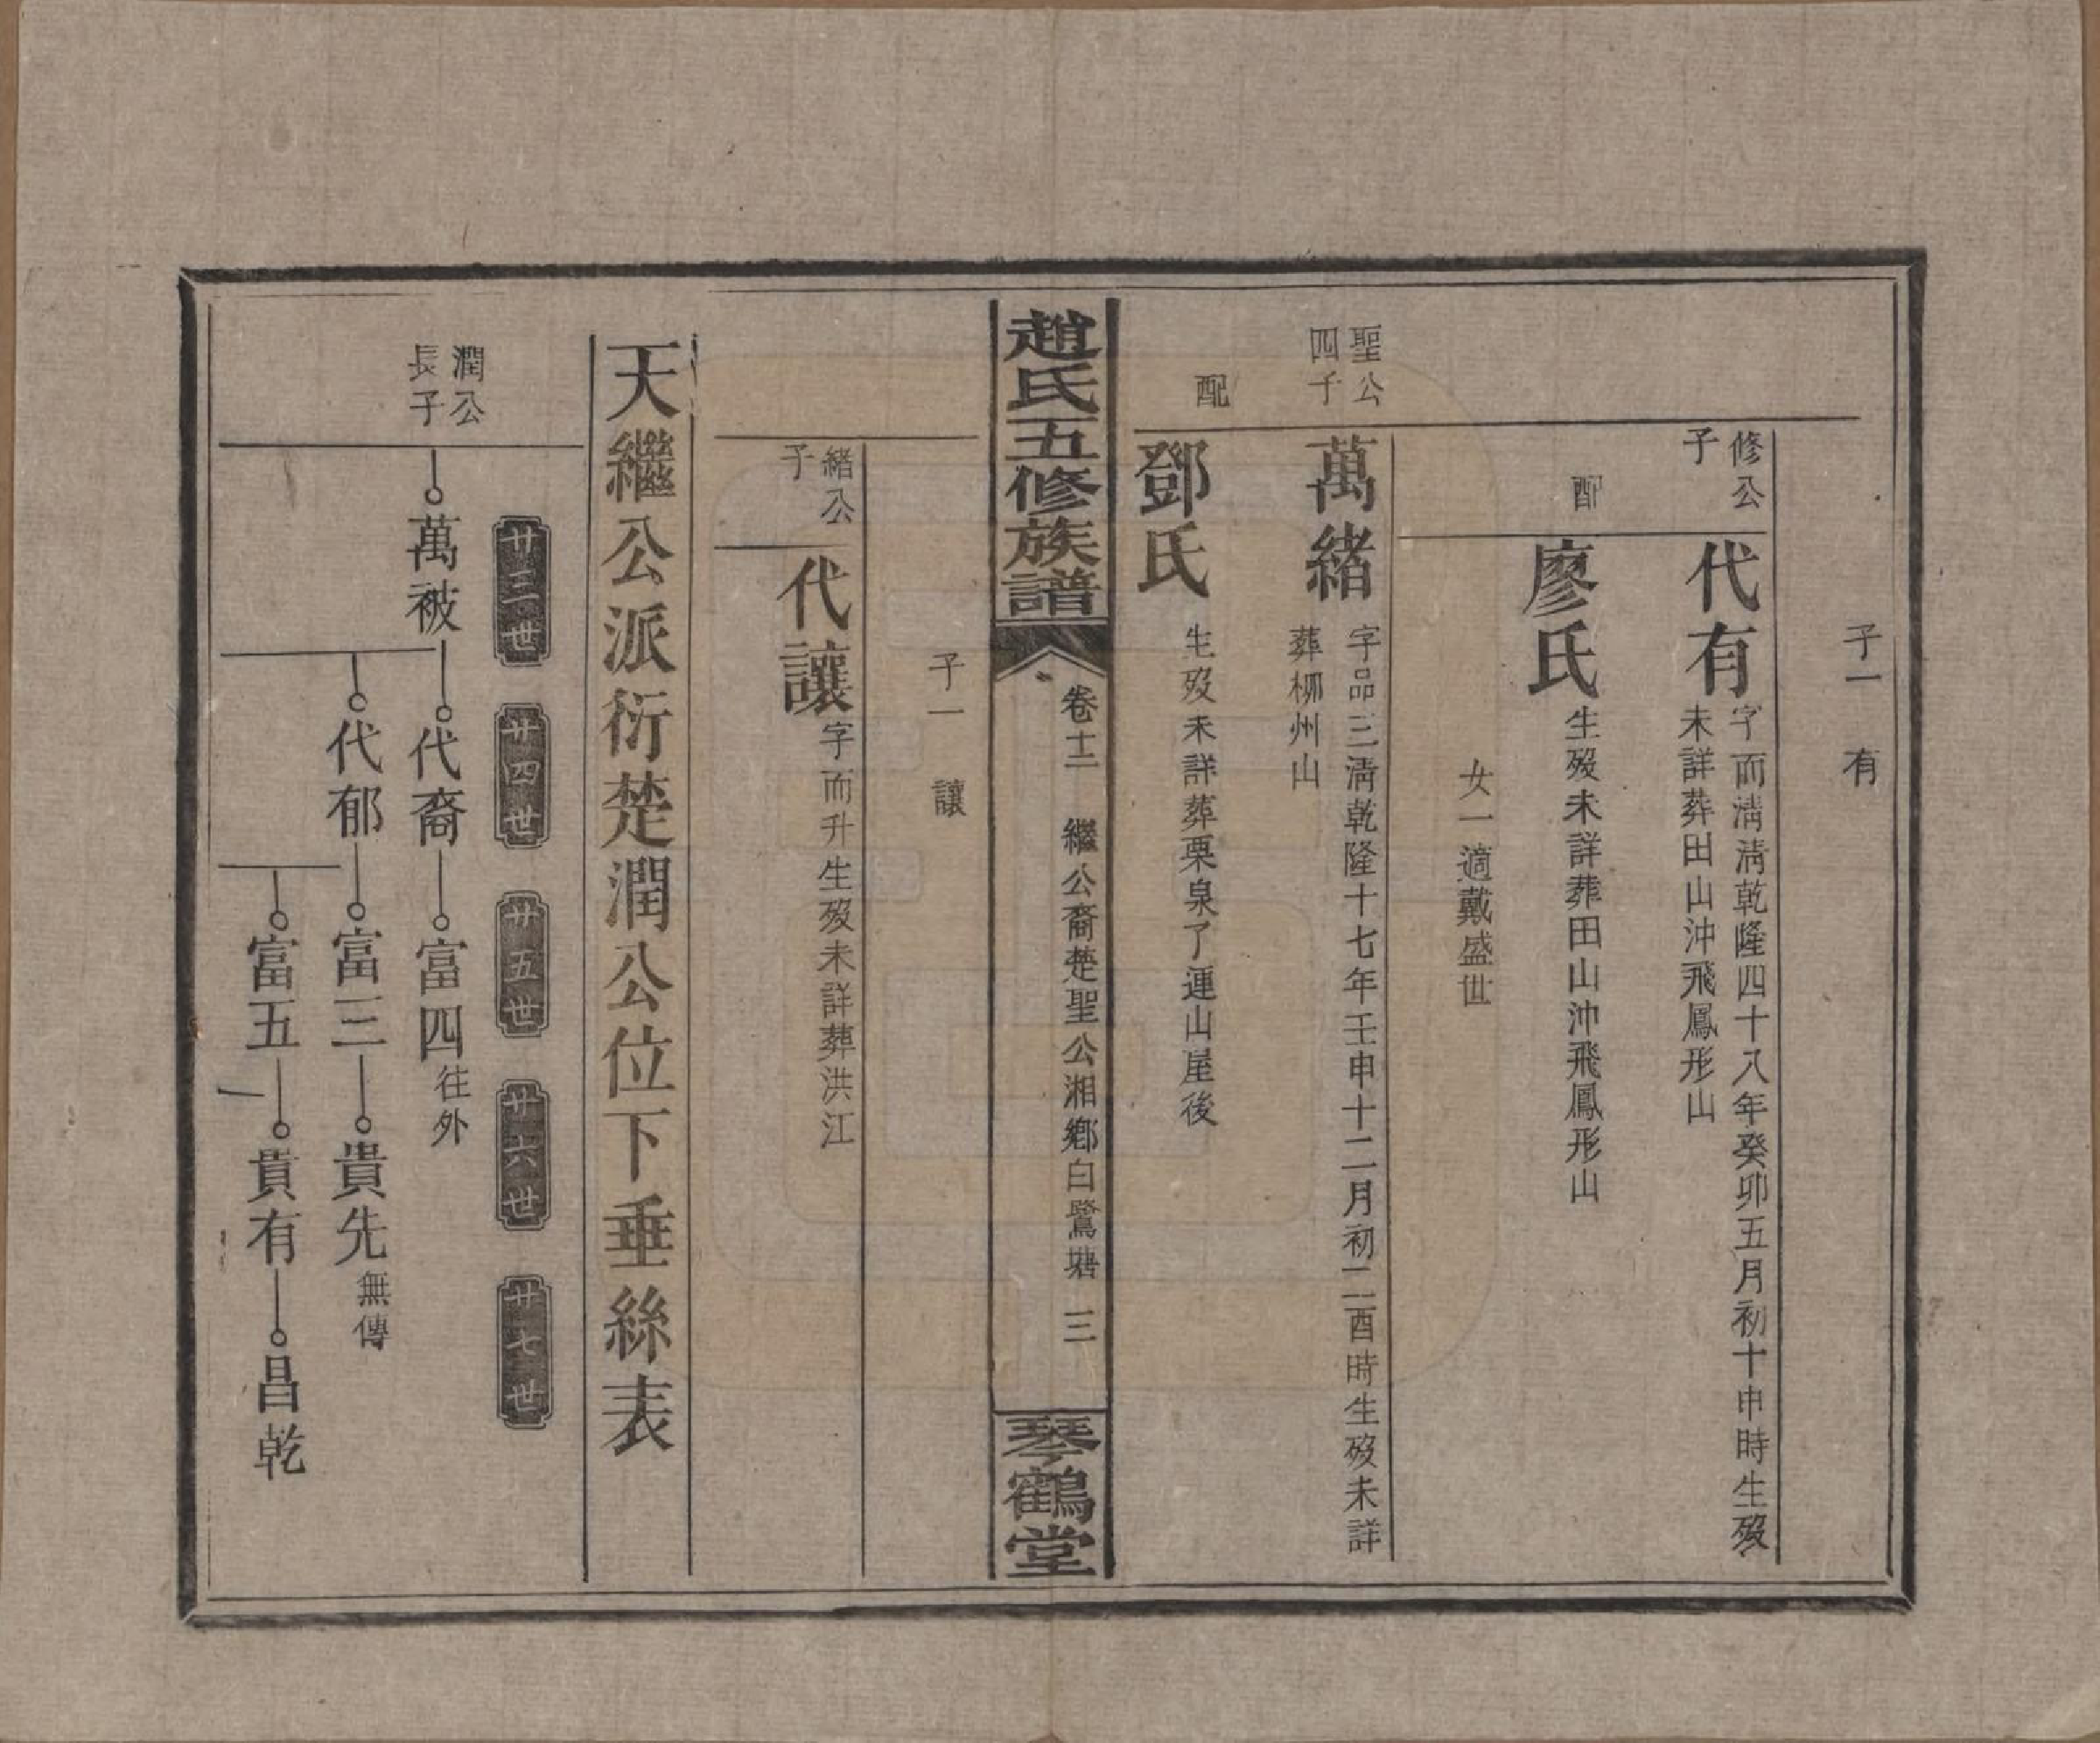 子一　有
修公
子
代有
字而清清乾隆四十八年癸卯五月初十申時生歿
未詳葬田山沖飛鳳形山
配
廖氏
生歿未詳葬田山沖飛鳳形山
女一適戴盛世
聖公
四子
萬緒
字品三清乾隆十七年壬申十二月初二酉時生歿未詳
葬柳州山
配
鄧氏
生歿未詳葬栗泉了運山屋後
趙氏五修族譜
卷十二　繼公裔楚聖公湘鄉白鷺塘　三
琴鶴堂
子一　讓
緒公
子
代讓
字而升生歿未詳葬洪江
天繼公派衍楚潤公位下垂絲表
廿三世　廿四世　廿五世　廿六世　廿七世
潤公
長子
萬被　代裔　富四　往外
代郁　富三　貴先　無傳
富五　貴有　昌乾